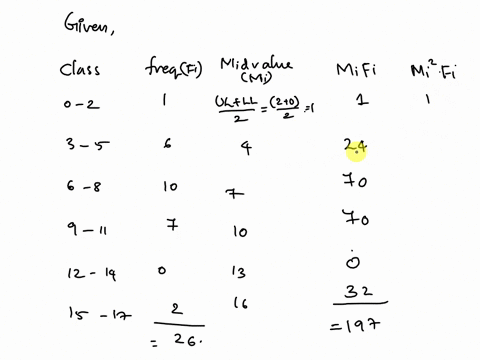 Given,
Class freq(Fi) Midvalue (Mi) MiFi Mi².Fi
0-2 1 (UL+LL)/2 = (2+0)/2 = 1 1 1
3-5 6 4 24
6-8 10 7 70
9-11 7 10 70
12-14 0 13 0
15-17 2 16 32
= 26. = 197